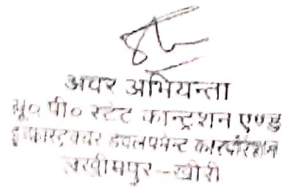 अवर अभियन्ता
यू० पी० स्टेट कान्ट्रशन एण्ड
इन्फ्रास्ट्रक्चर डवलपमेन्ट कारपोरेशन
लखीमपुर-खीरी